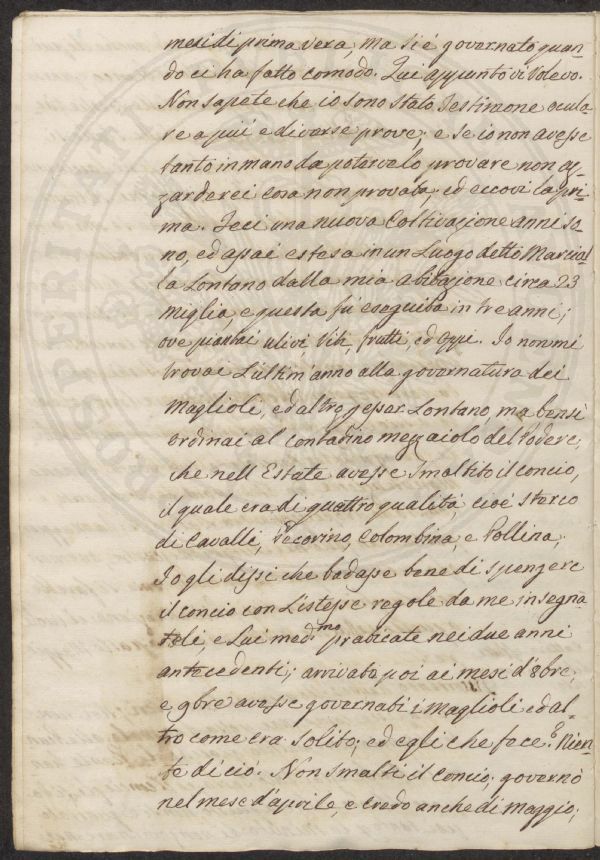 mesi di prima vera, ma si é governato quan-
do ci ha fatto comodo. Qui appunto vi volevo.
Non sapete che io sono stato Testimone ocula-
re a piú e diverse prove; e se io non avesse
tanto in mano da potervelo provare non az-
zarderei cosa non provata; ed eccovi la pri-
ma. Feci una nuova Coltivazione anni so-
no, ed assai estesa in un Luogo detto Marcial-
la Lontano dalla mia abitazione circa 23
miglia, e questa fú eseguita in tre anni;
ove piantai ulivi, Viti, frutti, ed Oppi. Io non mi
trovai L'ultim'anno alla governatura dei
Maglioli, ed altro p esser Lontano, ma bensi
ordinai al Contadino mezzaiolo del Podere,
che nell Estate avesse Smaltito il concio,
il quale era di quattro qualitá, cioé sterco
di Cavalli, Pecorino, Colombina, e Pollina,
Io gli dissi che badasse bene di spengere
il concio con L'istesse regole da me insegna-
teli, e Lui med.mo praticate nei due anni
antecedenti; arrivato poi ai mesi d'8bre,
e 9bre avesse governati i Maglioli ed al-
tro come era Solito; ed egli che fece? Nien-
te di ció. Non Smaltí il Concio; governó
nel mese d'aprile, e credo anche di Maggio;